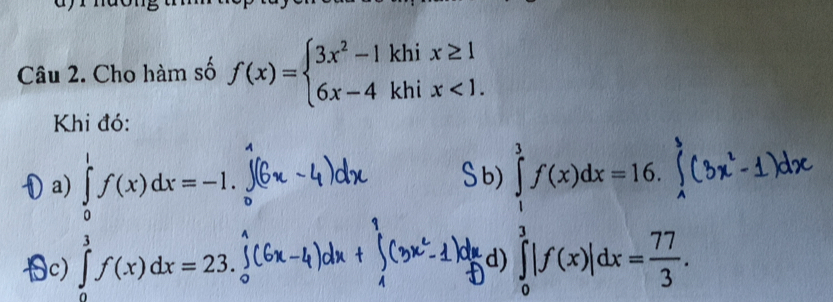 Câu 2. Cho hàm số f(x) = { 3x² − 1 khi x ≥ 1
6x − 4 khi x < 1.
Khi đó:
Đ a) ∫₀¹ f(x) dx = −1. ∫₀¹ (6x − 4)dx S b) ∫₁³ f(x)dx = 16. ∫₁³ (3x² − 1)dx
S c) ∫₀³ f(x) dx = 23. ∫₀¹ (6x − 4)dx + ∫₁³ (3x² − 1)dx Đ d) ∫₀³ |f(x)| dx = 77/3.